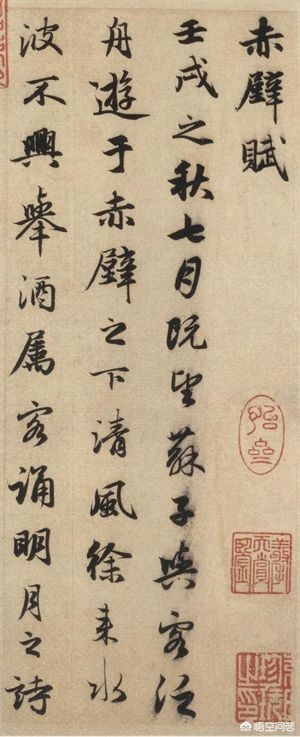 赤壁賦
壬戌之秋七月既望蘇子與客泛
舟遊于赤壁之下清風徐来水
波不興舉酒屬客誦明月之詩
悟空问答